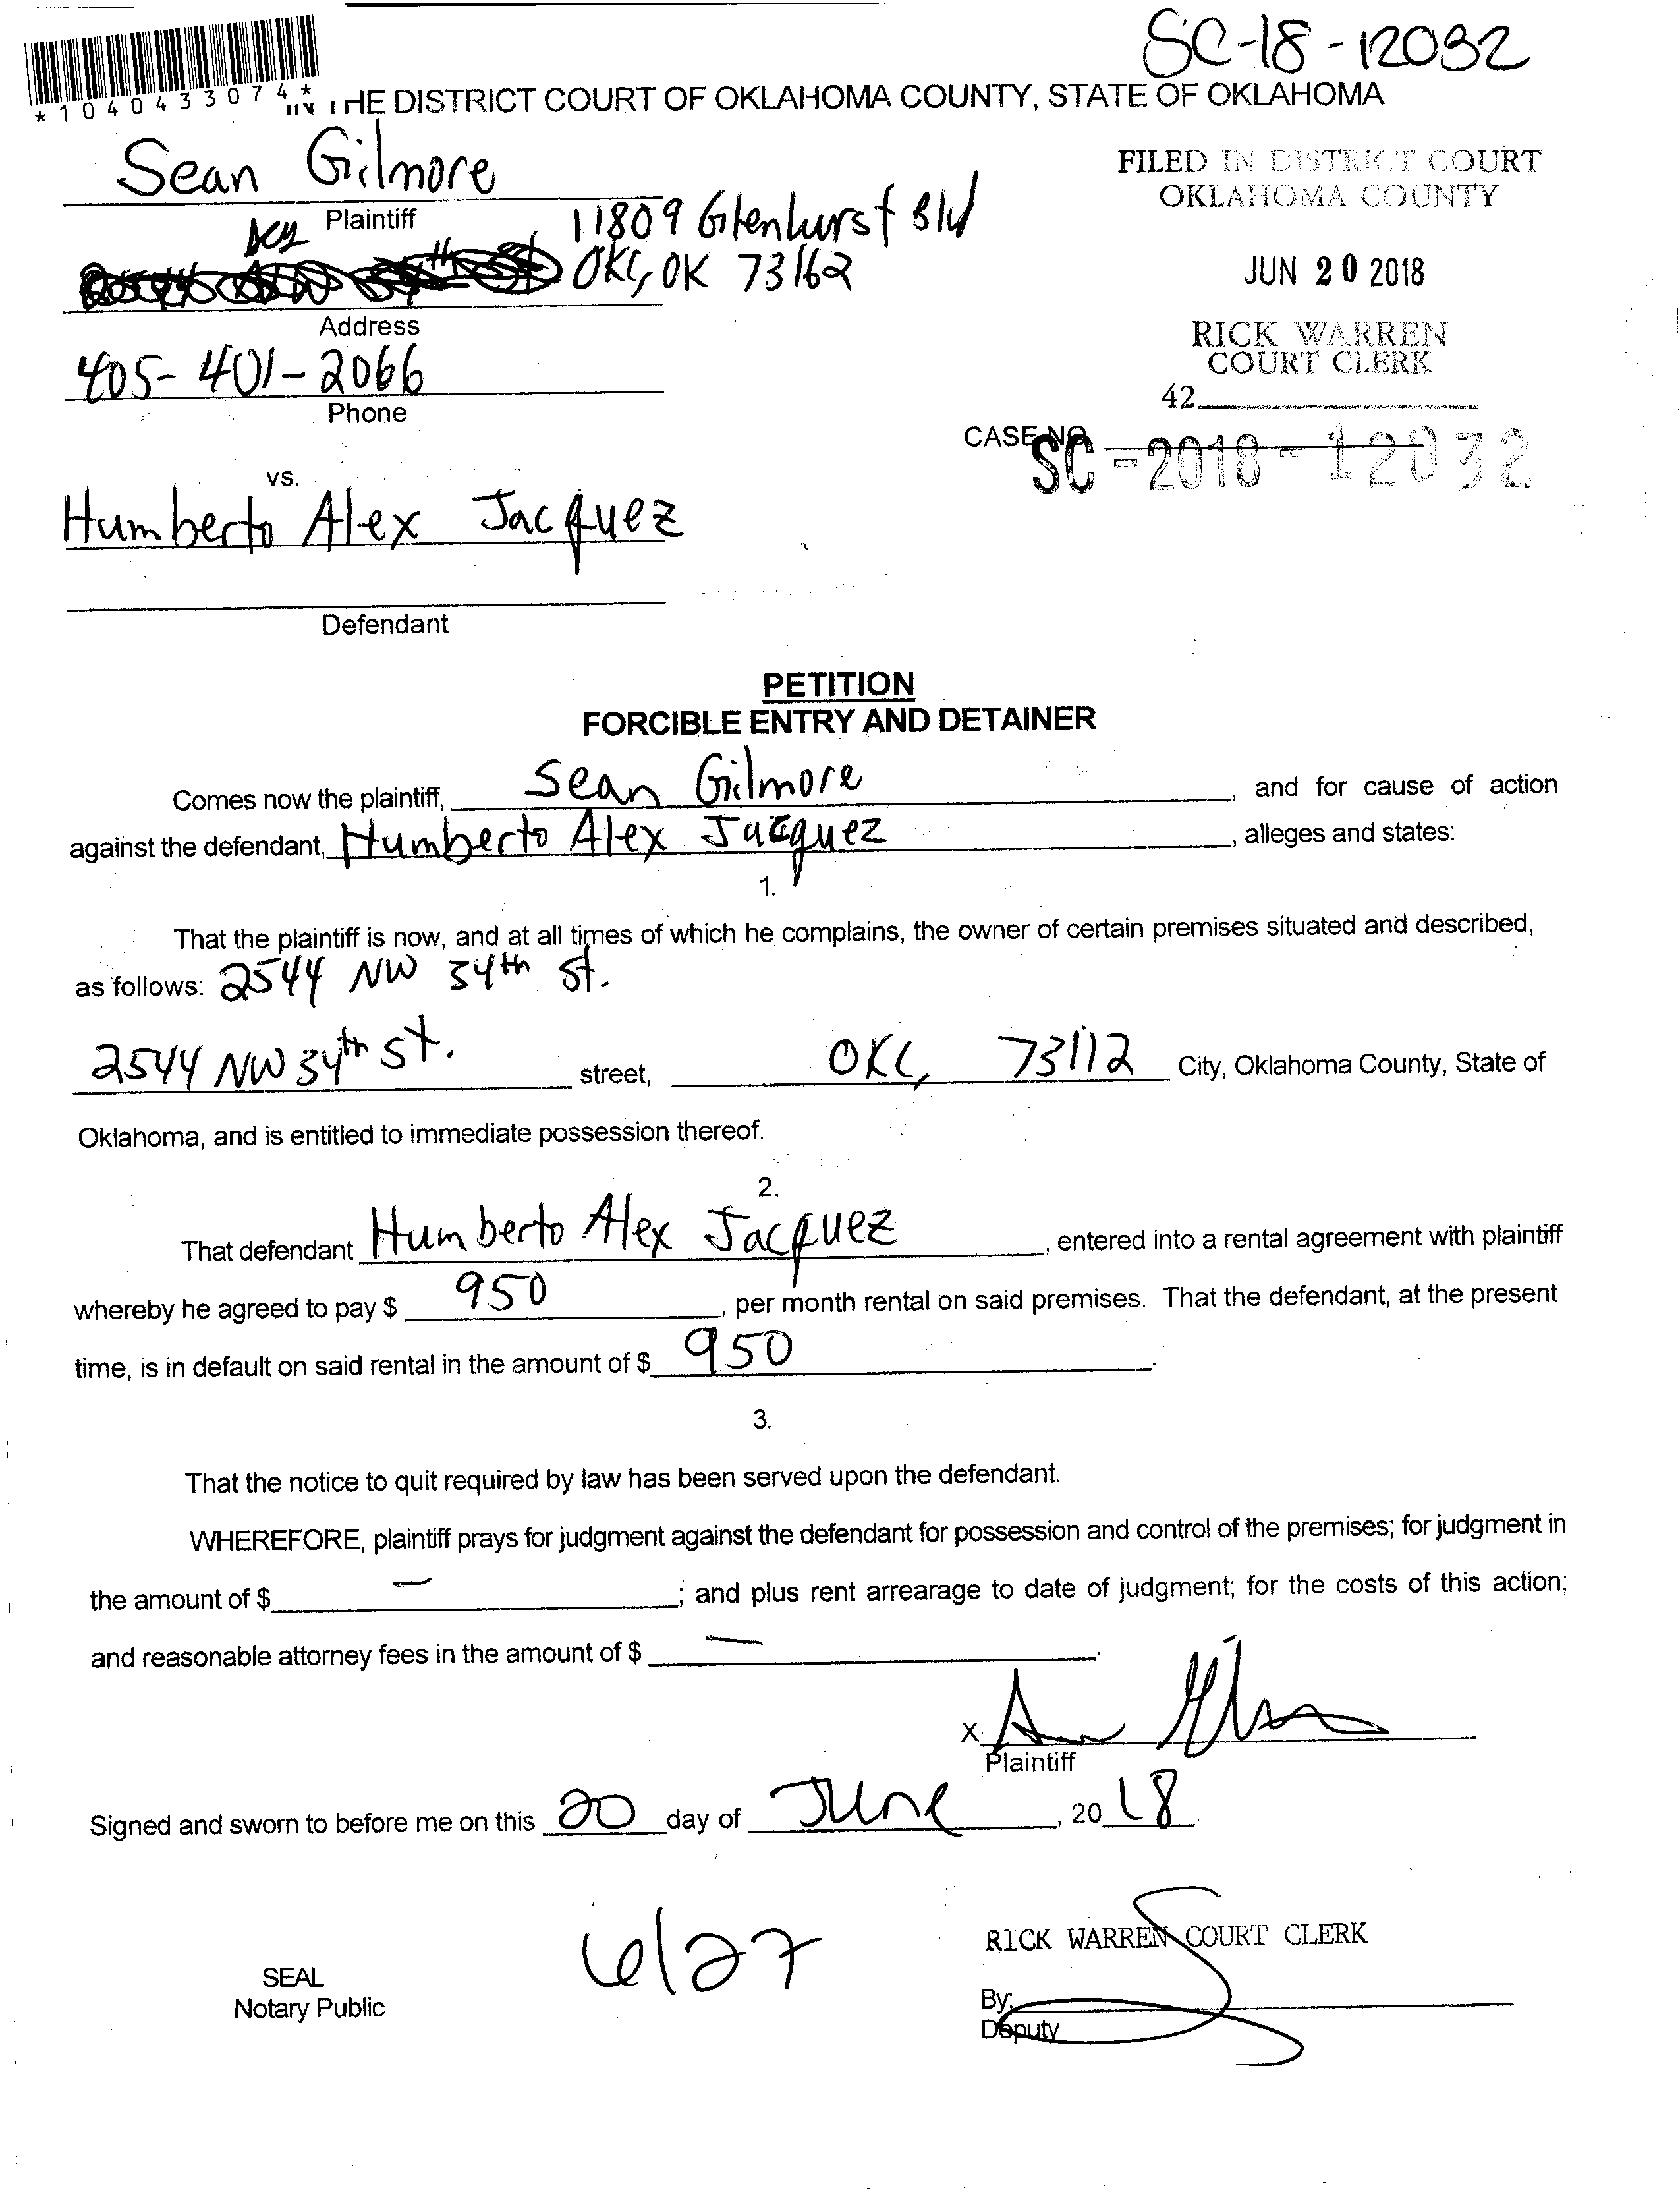 SC-18-12032
*1040433074*
IN THE DISTRICT COURT OF OKLAHOMA COUNTY, STATE OF OKLAHOMA
Sean Gilmore
Plaintiff
FILED IN DISTRICT COURT
OKLAHOMA COUNTY
11809 Glenhurst Blvd
OKC, OK 73162
Address
JUN 20 2018
405-401-2066
Phone
RICK WARREN
COURT CLERK
42
CASE NO.
SC-2018-12032
vs.
Humberto Alex Jacquez
Defendant
PETITION
FORCIBLE ENTRY AND DETAINER
Comes now the plaintiff, Sean Gilmore, and for cause of action
against the defendant, Humberto Alex Jacquez, alleges and states:
1.
That the plaintiff is now, and at all times of which he complains, the owner of certain premises situated and described,
as follows: 2544 NW 34th St.
2544 NW 34th St. street, OKC, 73112 City, Oklahoma County, State of
Oklahoma, and is entitled to immediate possession thereof.
2.
That defendant Humberto Alex Jacquez, entered into a rental agreement with plaintiff
whereby he agreed to pay $ 950, per month rental on said premises. That the defendant, at the present
time, is in default on said rental in the amount of $ 950.
3.
That the notice to quit required by law has been served upon the defendant.
WHEREFORE, plaintiff prays for judgment against the defendant for possession and control of the premises; for judgment in
the amount of $ —; and plus rent arrearage to date of judgment; for the costs of this action;
and reasonable attorney fees in the amount of $ —.
X
Plaintiff
Signed and sworn to before me on this 20 day of June, 2018.
6/27
RICK WARREN COURT CLERK
SEAL
Notary Public
By:
Deputy